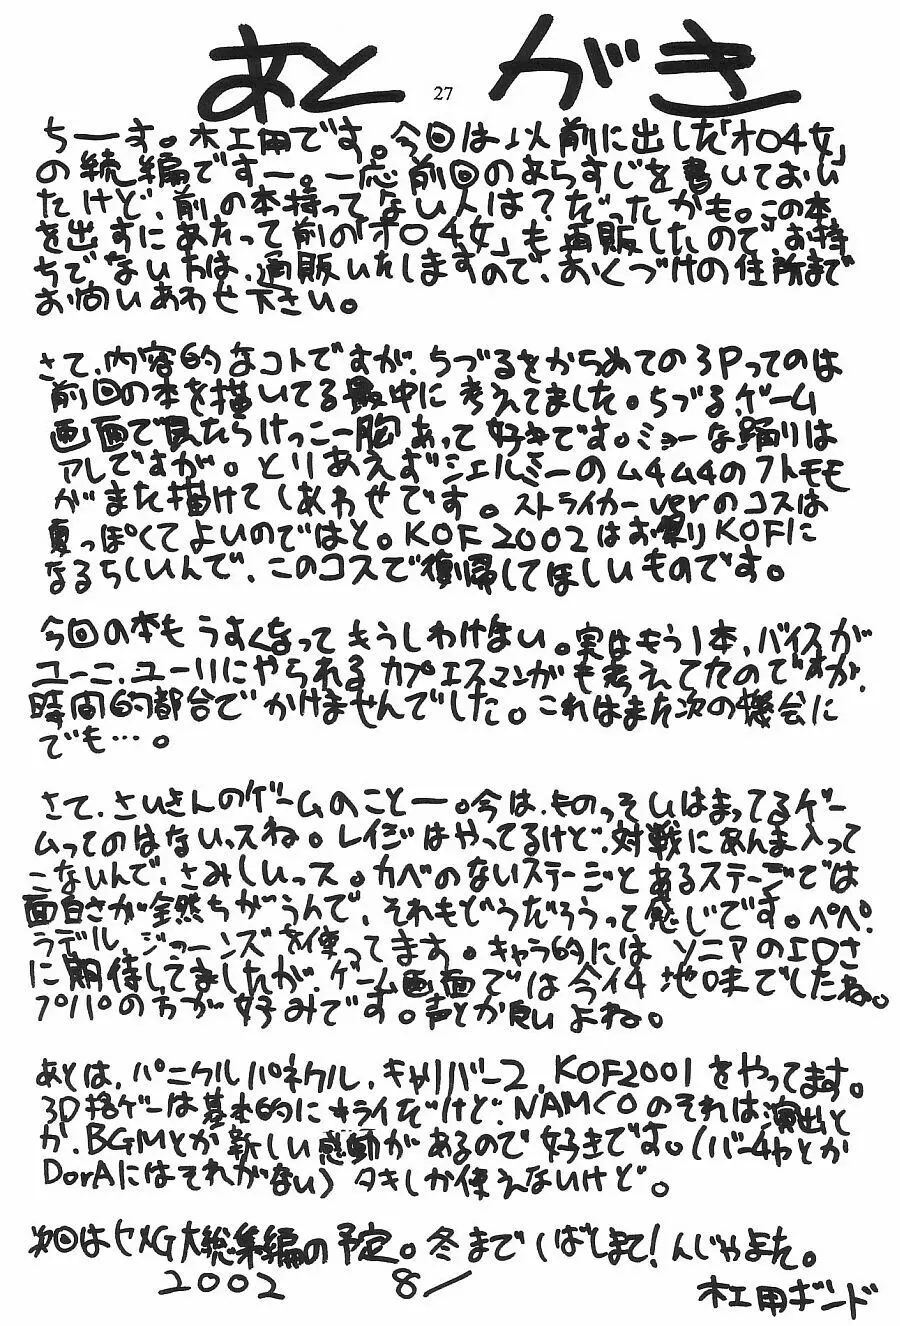 あとがき
27
ちーす。木工用です。今回は以前に出した「オロ4女」
の続編ですー。一応前回のあらすじを書いておい
たけど、前の本持ってない人は?だったかも。この本
を出すにあたって前の「オロ4女」も再販したので、お持
ちでない方は、通販いたしますので、おくづけの住所まで
お問いあわせ下さい。
さて、内容的なコトですが、ちづるをからめての3Pってのは
前回の本を描いてる最中に考えてました。ちづる、ゲーム
画面で見たらけっこー胸あって好きです。ミョーな踊りは
アレですが。とりあえずシェルミーのム4ム4のフトモモ
がまた描けてしあわせです。ストライカーverのコスは
夏っぽくてよいのではと。KOF2002はお祭りKOFに
なるらしいんで、このコスで復帰してほしいものです。
今回の本もうすくなってもうしわけない。実はもう1本、バイスが
ユーニ、ユーリにやられるカプエスマンガも考えてたのですが、
時間的都合でかけませんでした。これはまた次の機会に
でも…。
さて、さいきんのゲームのことー。今は、ものっそいはまってるゲー
ムってのはないっスね。レイジはやってるけど、対戦にあんま入って
こないんで、さみしいっス。カベのないステージとあるステージでは
面白さが全然ちがうんで、それもどうだろうって感じです。ペペ、
ラデル、ジョーンズを使ってます。キャラ的にはソニアのエロさ
に期待してましたが、ゲーム画面では今イ4地味でしたね。
プルプルの方が好みです。声とか良いよね。
あとは、パニクルパネクル、キャリバー2、KOF2001をやってます。
3D格ゲーは基本的にキライだけど、NAMCOのそれは演出と
か、BGMとか新しい感動があるので好きです。(バー4ャとか
DorAにはそれがない)タキしか使えないけど。
次回はヒメG大総集編の予定。冬までしばしまて!んじゃまた。
2002 8/
木工用ボンド